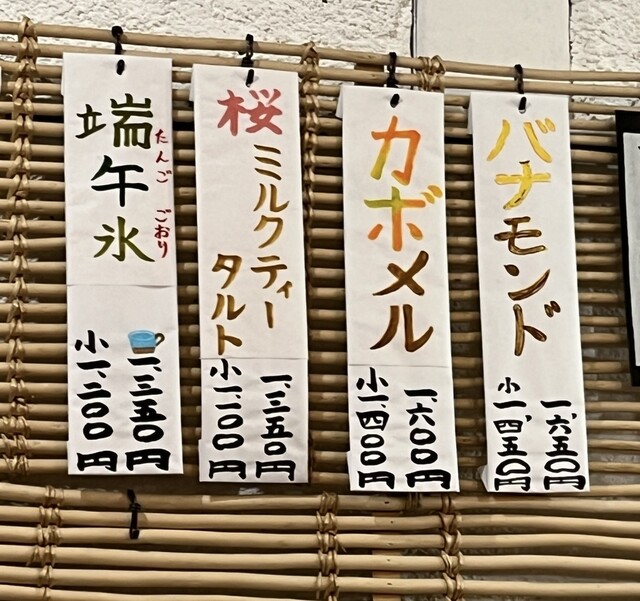 バナモンド
一、六五〇円
小一、四五〇円
カボメル
一、六〇〇円
小一、四〇〇円
桜
ミルクティー
タルト
一、三五〇円
小一、一〇〇円
端午氷
たんご ごおり
一、三五〇円
小一、二〇〇円